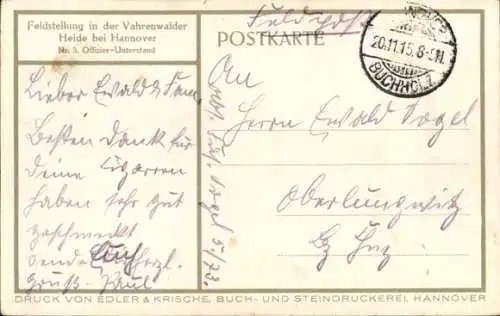 Feldstellung in der Vahrenwalder
Heide bei Hannover
Nr. 3. Offizier-Unterstand
Feldpost
POSTKARTE
20.11.15. 8-9N.
BUCHHOLZ
Lieber Ewald & Fam.
Besten Dank für
Deine Cigarren
haben sehr gut
geschmeckt
sende Euch herzl.
Gruß. Paul
An
Herrn Ewald Vogel
Oberlungwitz
DRUCK VON EDLER & KRISCHE, BUCH- UND STEINDRUCKEREI, HANNOVER